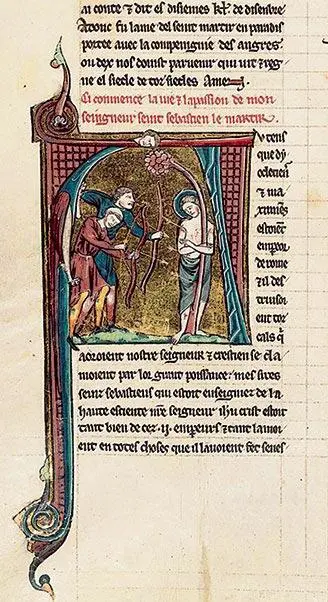 ai conte & dit el disiemes kl'. de disenbre
Adonc fu lame del seint martir en paradis
portee avec la compeignie des angres.
ou dex nos doinst parvenir qui uit & reg-
ne el siecle de toz siecles Amen
Ci commence la uie & la passion de mon
seingneur seint sebastien le martir.
v tens
que dy
ocletien
& ma
ximiens
estoient
empeor
de rome
& il des
truisoi
ent toz
cals q
aoroient nostre seigneur & crestien se cla
moient par lor grant poissance: mes sires
seinz sebastiens qui estoit enseignez de la
haute escience nre seigneur ihu crist estoit
tant bien de cez .ij. empereurs & tant lamoi
ent en totes choses que il lauoient fet senes